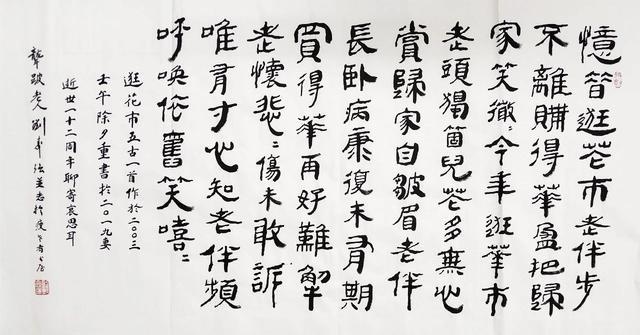 憶昔逛花市老伴步
不離購得華盈把歸
家笑微〻今年逛華市
老頭獨箇兒花多無心
賞歸家自皺眉老伴
長卧病康復未有期
買得華再好難解
老懷悲〻傷未敢訴
唯有寸心知老伴頻
呼喚依舊笑嘻〻
逛花市五古一首作於二〇〇三
壬午除夕重書於二〇一九妻
逝世一十二周年聊寄哀思耳
聾跛老人劉並志於